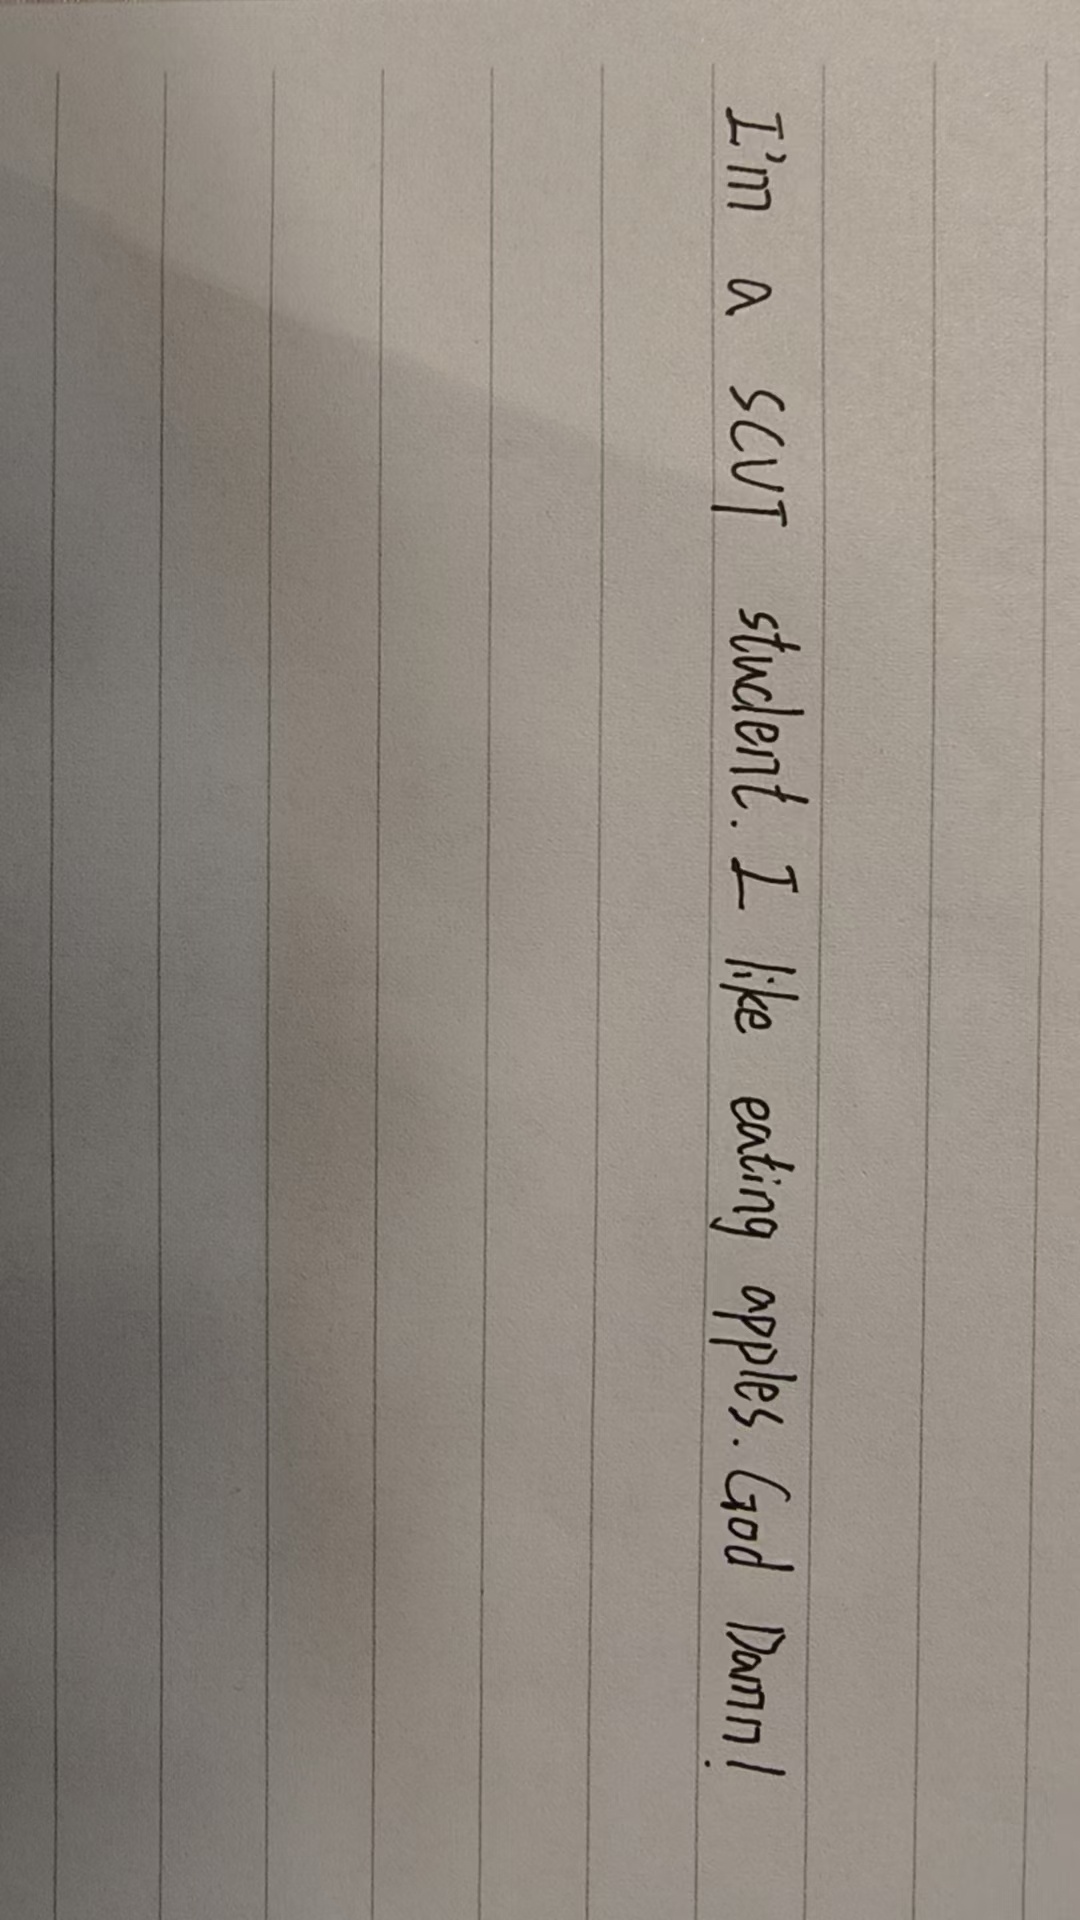 I'm a SCUT student. I like eating apples. God Damn!